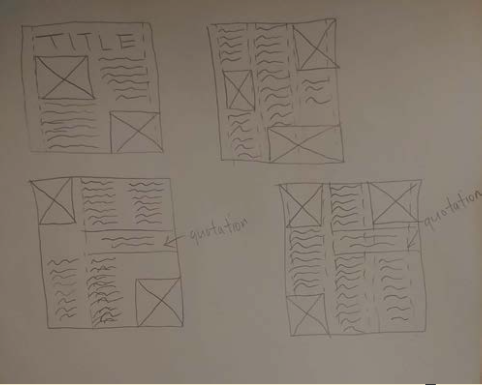 TITLE
quotation
quotation